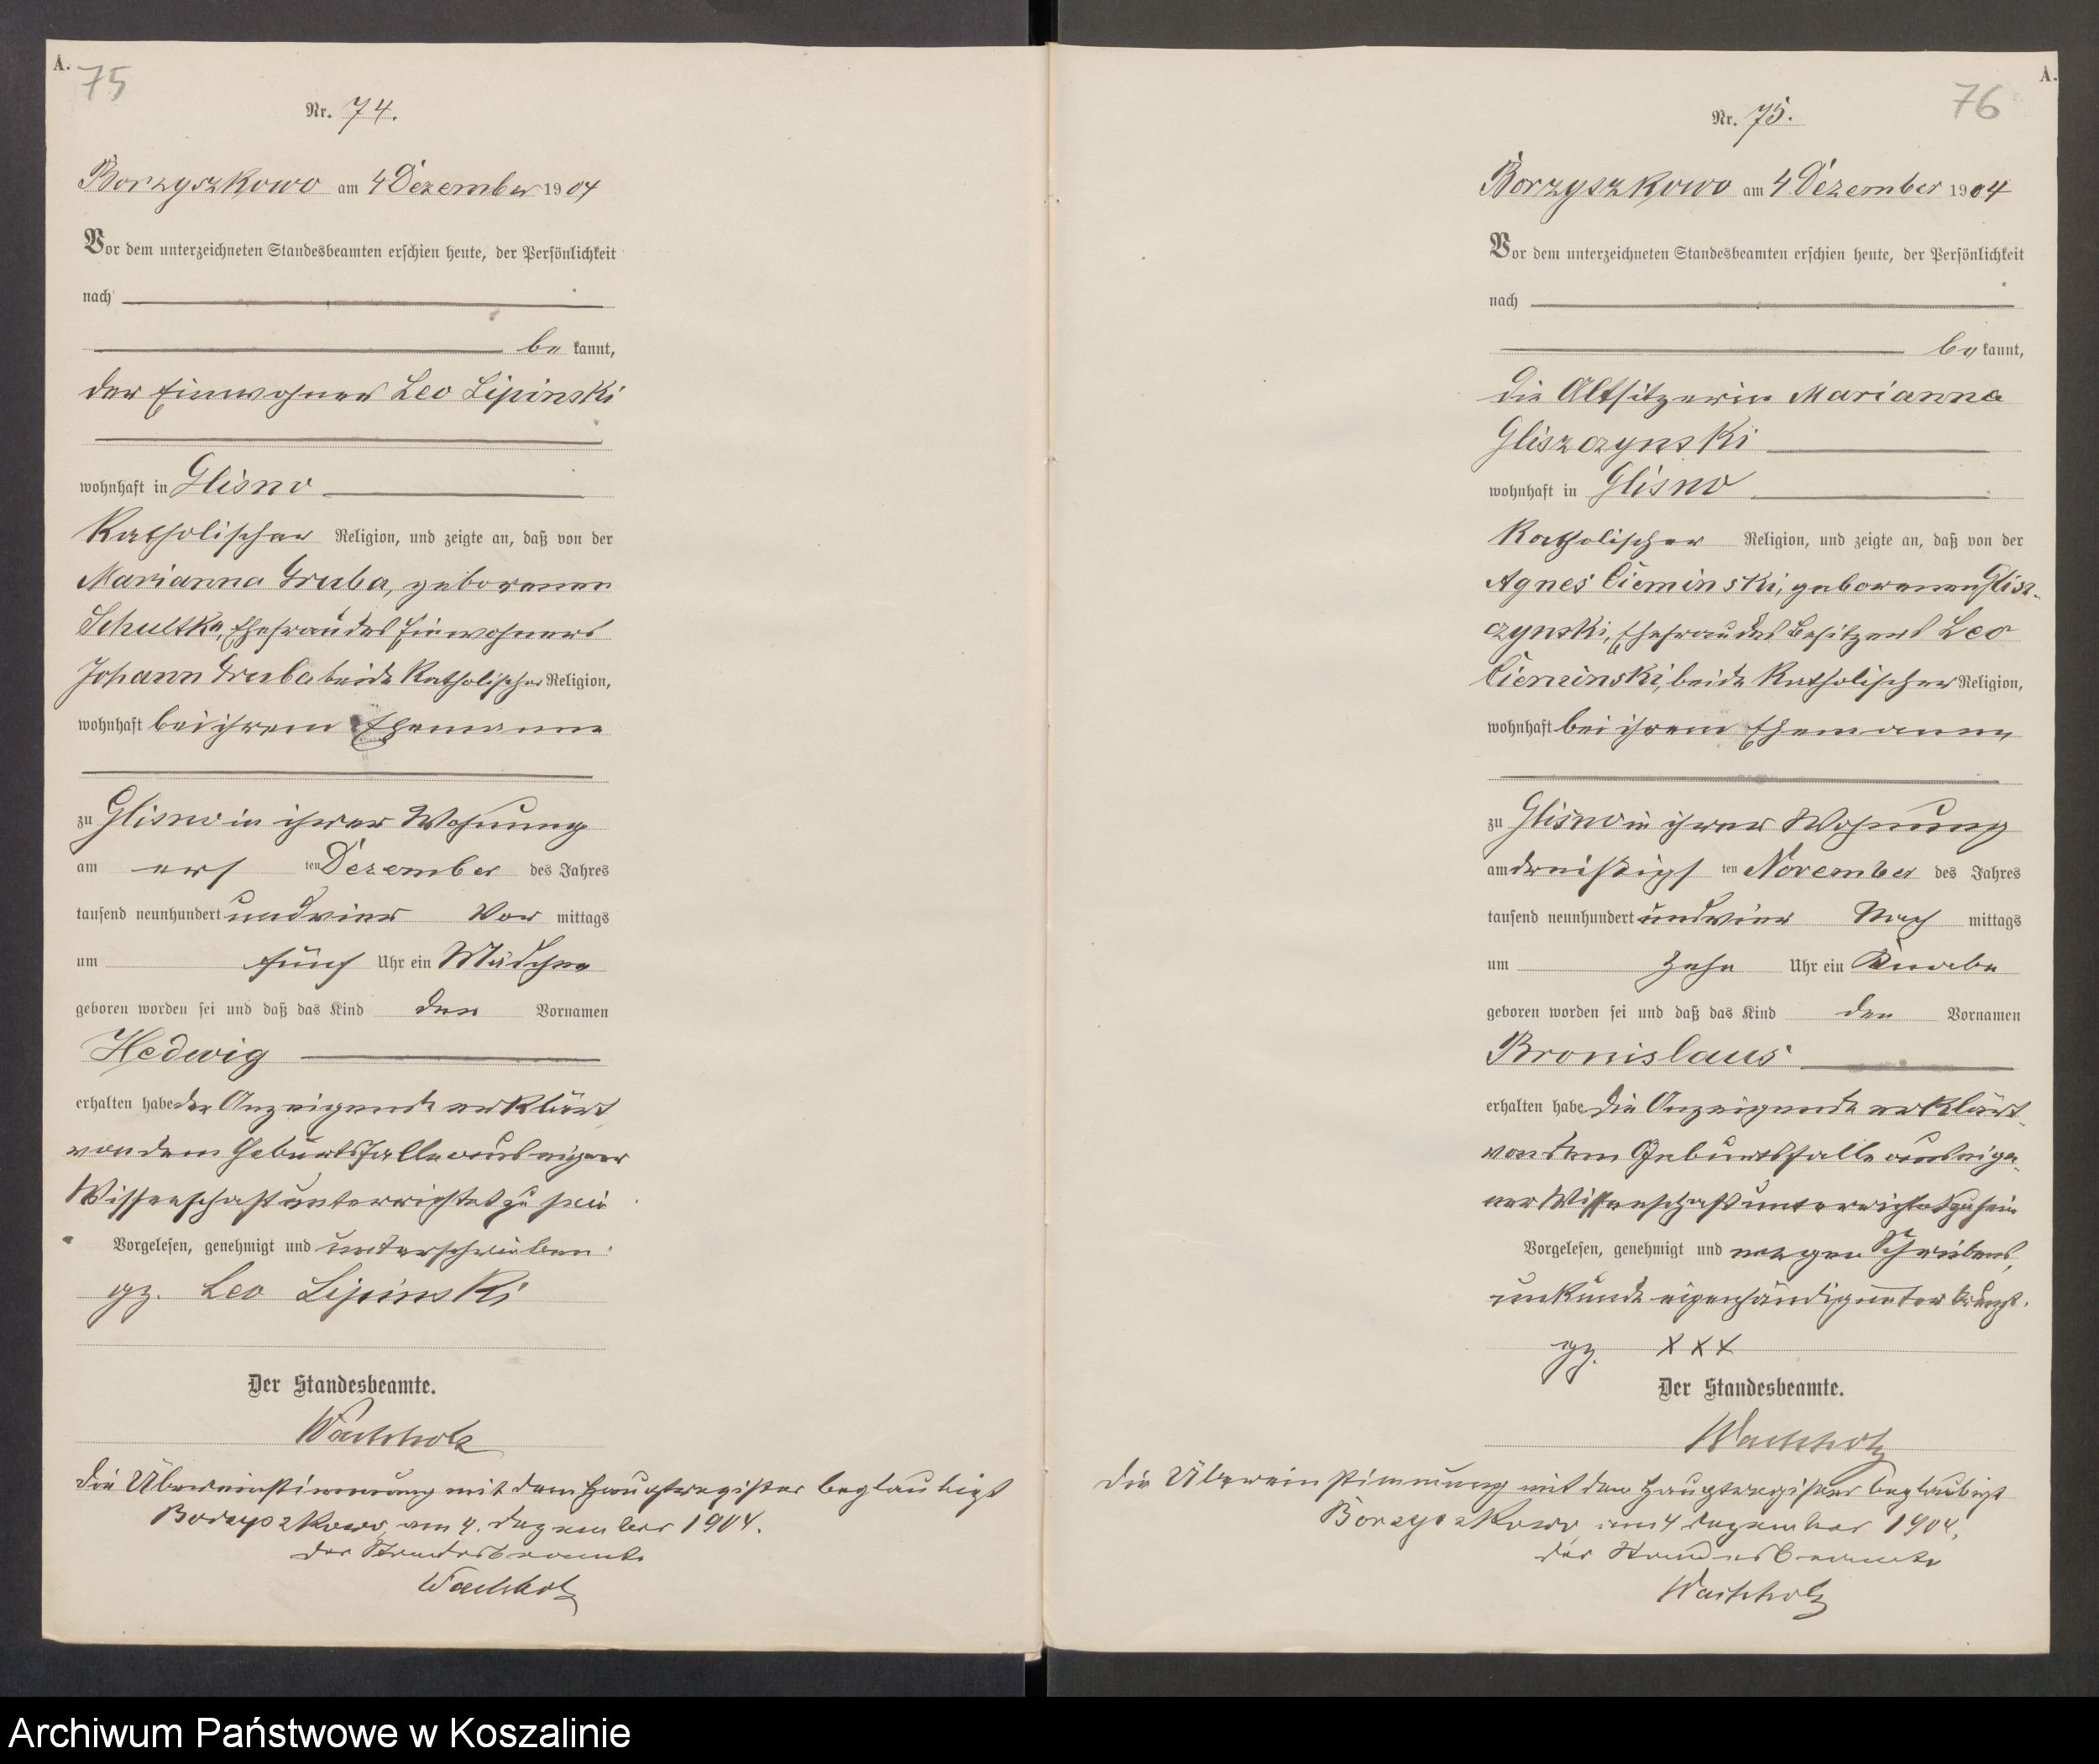 A.
75
Nr. 74.
Borzyszkowo am 4 Dezember 1904
Vor dem unterzeichneten Standesbeamten erschien heute, der Persönlichkeit
nach
be kannt,
der Einwohner Leo Lipinski
wohnhaft in Glisno
katholischer Religion, und zeigte an, daß von der
Marianna Gruba, geborenen
Schultka, Ehefrau des Einwohners
Johann Gruba beide katholischer Religion,
wohnhaft bei ihrem Ehemanne
zu Glisno in ihrer Wohnung
am ers ten Dezember des Jahres
tausend neunhundert und vier Vor mittags
um fünf Uhr ein Mädchen
geboren worden sei und daß das Kind den Vornamen
Hedwig
erhalten habe der Anzeigende erklärt,
von dem Geburtsfalle aus eigener
Wissenschaft unterrichtet zu sein
Vorgelesen, genehmigt und unterschrieben:
gz. Leo Lipinski
Der Standesbeamte.
Wachholz
Die Übereinstimmung mit dem Hauptregister beglaubigt
Borzyszkowo, am 4. Dezember 1904.
Der Standesbeamte
Wachholz
A.
76
Nr. 75.
Borzyszkowo am 4 Dezember 1904
Vor dem unterzeichneten Standesbeamten erschien heute, der Persönlichkeit
nach
be kannt,
die Altsitzerin Marianna
Gliszczynski
wohnhaft in Glisno
katholischer Religion, und zeigte an, daß von der
Agnes Cieminski, geborenen Glisz-
czynski, Ehefrau des Besitzers Leo
Cieminski, beide katholischer Religion,
wohnhaft bei ihrem Ehemanne
zu Glisno in ihrer Wohnung
am dreißigs ten November des Jahres
tausend neunhundert und vier Nach mittags
um zehn Uhr ein Knabe
geboren worden sei und daß das Kind den Vornamen
Bronislaus
erhalten habe die Anzeigende erklärt,
von dem Geburtsfalle aus eige-
ner Wissenschaft unterrichtet zu sein
Vorgelesen, genehmigt und wegen Schreibens-
unkunde eigenhändig unterkreuzt.
gz. XXX
Der Standesbeamte.
Wachholz
Die Übereinstimmung mit dem Hauptregister beglaubigt
Borzyszkowo, am 4 Dezember 1904.
Der Standesbeamte
Wachholz
Archiwum Państwowe w Koszalinie